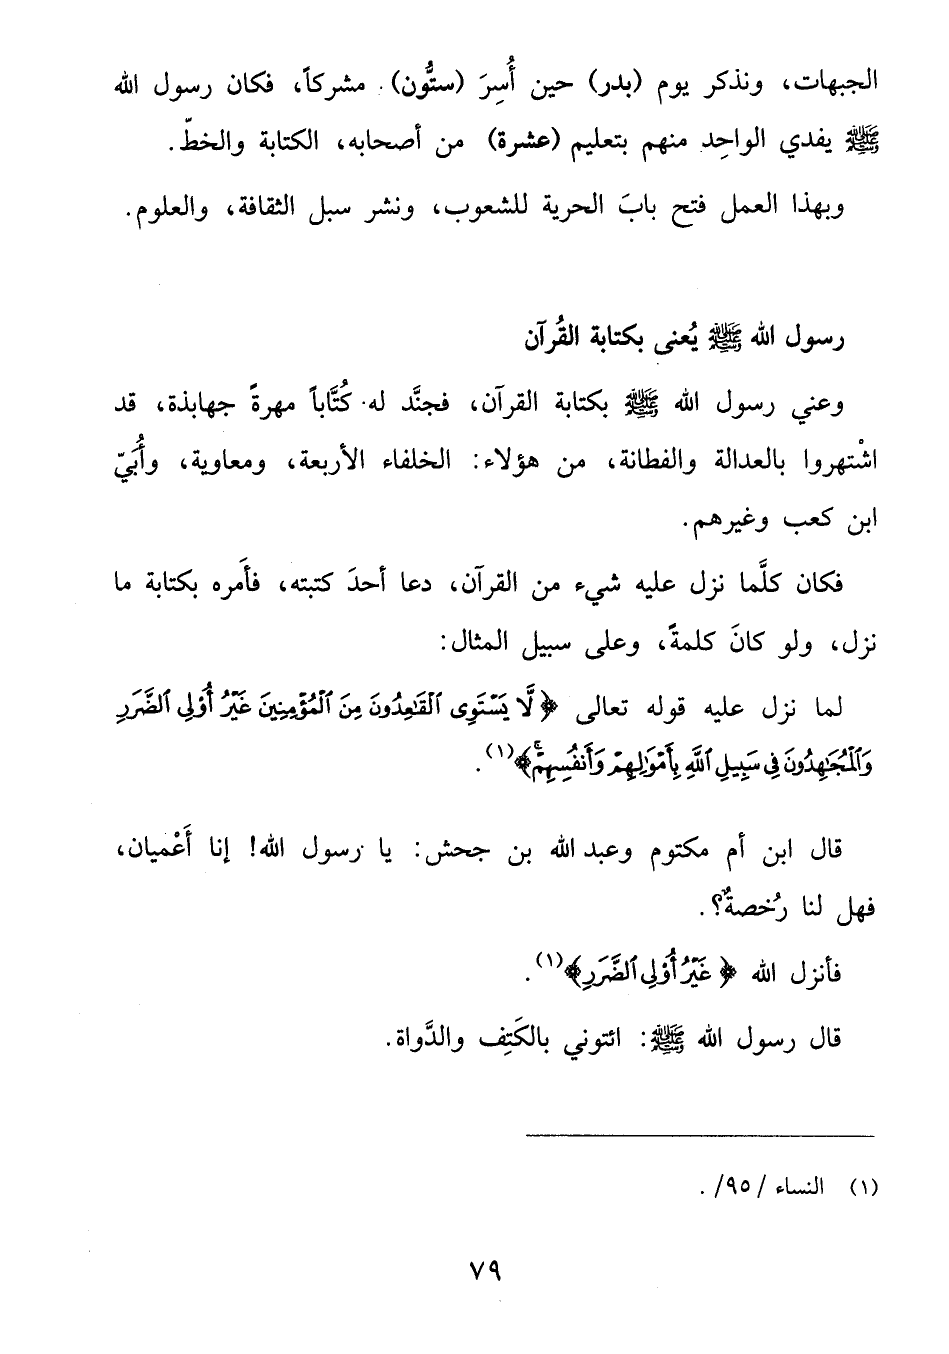 الجبهات، ونذكر يوم (بدر) حين أُسِرَ (ستُّون) مشركاً، فكان رسول الله
ﷺ يفدي الواحِد منهم بتعليم (عشرة) من أصحابه، الكتابة والخطّ.
وبهذا العمل فتح بابَ الحرية للشعوب، ونشر سبل الثقافة، والعلوم.
رسول الله ﷺ يُعنى بكتابة القُرآن
وعني رسول الله ﷺ بكتابة القرآن، فجنَّد له كُتَّاباً مهرةً جهابذة، قد
اشْتهروا بالعدالة والفطانة، من هؤلاء: الخلفاء الأربعة، ومعاوية، وأُبَيّ
ابن كعب وغيرهم.
فكان كلَّما نزل عليه شيء من القرآن، دعا أحدَ كتبته، فأَمره بكتابة ما
نزل، ولو كانَ كلمةً، وعلى سبيل المثال:
لما نزل عليه قوله تعالى ﴿لَّا يَسْتَوِى ٱلْقَٰعِدُونَ مِنَ ٱلْمُؤْمِنِينَ غَيْرُ أُوْلِى ٱلضَّرَرِ
وَٱلْمُجَٰهِدُونَ فِى سَبِيلِ ٱللَّهِ بِأَمْوَٰلِهِمْ وَأَنفُسِهِمْۚ﴾(١).
قال ابن أم مكتوم وعبد الله بن جحش: يا رسول الله! إنا أَعْميان،
فهل لنا رُخصةٌ؟.
فأنزل الله ﴿غَيْرُ أُوْلِى ٱلضَّرَرِ﴾(١).
قال رسول الله ﷺ: ائتوني بالكَتِف والدَّواة.
(١) النساء /٩٥/ .
٧٩